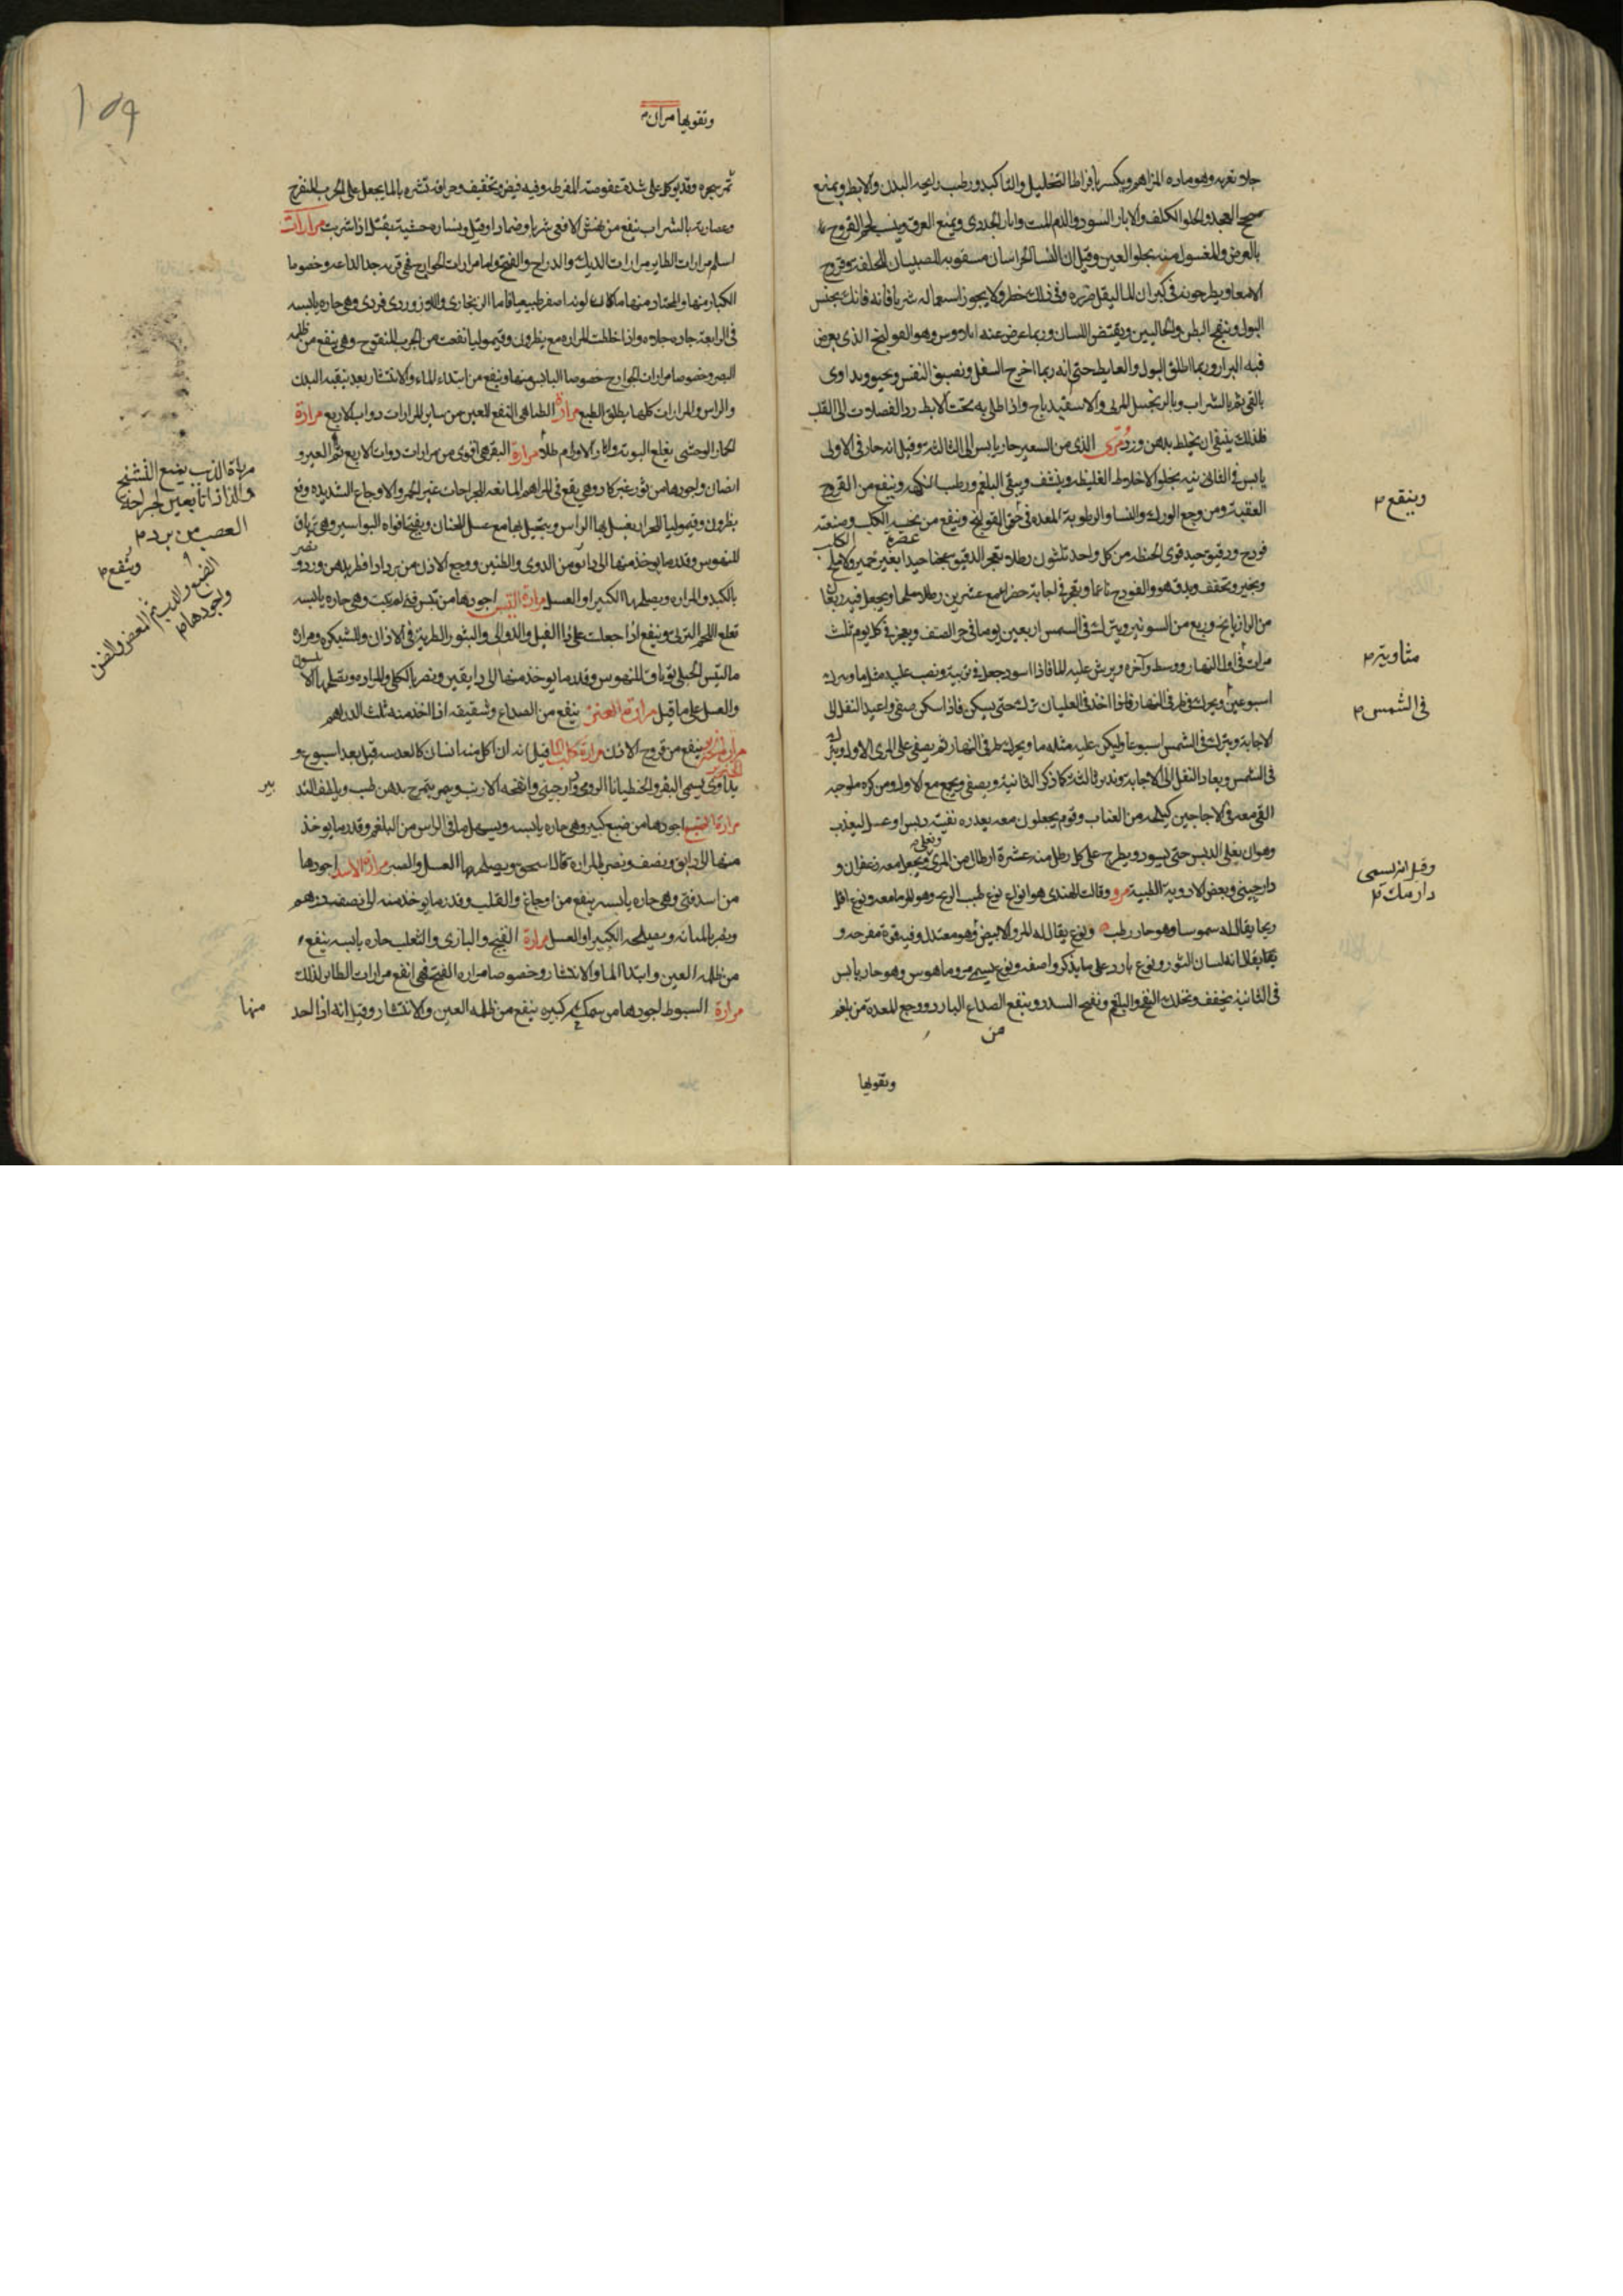 جلا تغريه وهو ماده المراهم ويكسر بافراطا التحليل والتاكيد ويطيب رايحه البدن والابط ويمنع
والجلو الكلف والاثار السود والدم الميت واثار الجدرى ويمنع العرق وينبت لحم القروح
بالعرض والمغسول منه يجلو العين وقيل ان النسا الخراسان يسقونه للصبيان للخلفة وقروح
الامعا ويطرحونه فى كيزان الما ليقل ضرره وفى ذلك خطر ولا يجوز استعماله شربا فانه قاتل يحبس
البول وينفخ البطن والحالبين ويقبض اللسان وربما عرض عنه ايلاوس وهو القولنج الذى يعرض
فيه البراز وربما اطلق البول والغايط حتى انه ربما اخرج السفل ويضيق النفس ويداوى
بالقى ثم بالشراب وبالزنجبيل المربى والاسفيدباج واذا طلى به تحت الابط رد الفضلات الى القلب
فلذلك ينبغى ان يخلط بدهن ورد مرى الذى من الشعير حار يابس الى الثالثة وقيل انه حار فى الاولى
يابس فى الثانية يجلو الاخلاط الغليظه وينشف وينقى البلغم ويطيب النكهه وينفع من القروح
العفنة ومن وجع الورك والنسا والرطوبة المعده فى حقن القولنج وينفع من عضة الكلب وصنعته
فودج ودقيق جيد قوى الحنطه من كل واحد ثلثون رطلا يعجن الدقيق عجنا جيدا بغير خمير ولا ملح
ويخبز ويجفف ويدق هو والفودج ناعما ويقر فى اجانة خضرا مع عشرين رطلا ملحا ويجعل فيه ربعان
من الرازيانج وربع من الشونيز ويترك فى الشمس اربعين يوما فى حر الصيف ويعجن فى كل يوم ثلث
مرات فى اول النهار ووسطه وآخره ويرش عليه الما فاذا اسود جعل فى ويصب عليه مثله ما ويترك
اسبوعين ويحرك فى طرفى النهار فاذا اخذ فى الغليان ترك حتى يسكن فاذا سكن صفى واعيد الثفل الى
الاجانة ويترك فى الشمس اسبوعا وليكن عليه مثله ما ويحرك طرفى النهار ثم يصفى على المرى الاول ويترك
فى الشمس ويعاد الثفل الى الاجانة ويدبر ثالثة كما ذكر الثانية ويصفى ويجمع مع الاول ومن كره ملوحته
القى معه فى الاجاجين كيلجه من العناب وقوم يجعلون معه بعد رده نفيه دبس او عسل ليعذب
وهو ان يغلى الدبس حتى يسود ويطرح على كل رطل منه عشرة ارطال من المرى ويغلى ويجعل معه زعفران و
دارچينى وبعض الادوية الطيبة مرو وقالت الهندى هو انواع نوع طيب الريح وهو المرماحوز ونوع اقل
ريحا يقال له سموسا وهو حار رطب ونوع يقال له المرو الابيض وهو معتدل وفيه قوة مفرحه و
يقال انه لسان الثور ونوع بارد على ما يذكر واصفه ونوع يسمى مروماهوس وهو حار يابس
فى الثانية يجفف ويحلل النفخ والبلغم ويفتح السدد وينفع الصداع البارد ووجع المعدة من بلغم
من
وتقويها
وينفع ٣
مثاوية ٣
فى الشمس ٣
وقيل انه يسمى
دارمك ٣
159
وتقويها مران ٣
ثمر شجره وقد يؤكل على شدة عفوصته المفرطه وفيه قبض وتجفيف وحرافه قشره بالما يجعل على الجرب المتقرح
وعصارته بالشراب ينفع من نهش الافعى شربا وضمادا وقيل نشارة خشبه يقتل اذا شربت مرارات
اسلم مرارات الطاير مرارات الديك والدراج والقبج واما مرارات الجوارح فهى قويه جدا لذاعه وخصوصا
الكبار منها والمختار منها ما كان لونه اصفر طبيعيا فاما الزنجارى واللازوردى فردى وهى حاره يابسه
فى الرابعة حاده جلاده واذا خلطت المراره مع نطرون وقيموليا نفعت من الجرب المتقرح وهى ينفع من ظلمه
البصر وخصوصا مرارات الجوارح خصوصا اليابس منها وينفع من ابتداء الماء والانتشار بعد تنقيه البدن
والراس والمرارات كلها يطلق الطبع مرارة الظباهى انفع للعين من ساير المرارات دواب الاربع مرارة
الحمار الوحشى يقلع البوته واثار الاورام طلا مرارة البقر هى اقوى من مرارات ذوات الاربع ثم العير و
الضان واجودها من ثور غير كار وهى يقع فى المراهم المانعه للجراحات عن الحمره والاوجاع الشديده ومع
نطرون وقيموليا للحزاز يغسل بها الراس ويتحمل بها مع عسل للخنان ويفتح افواه البواسير وهى ترياق
للنهوس وقدر ما يوخذ منها الى دانق من الدوى والطنين ووجع الاذن من برد اذا قطر بدهن ورد ويضر
بالكبد والمراره ويصلحها الكثيرا والعسل مرارة التيس اجودها من تيس فتى لم يتعب وهى حاره يابسه
تقلع اللحم التوتى وينفع اذا جعلت على دا الفيل والدوالى والبثور الطرية فى الاذان والشبكره ومرارة
التيس الجبلى ترياق للنهوس وقدر ما يوخذ منها الى دانقين ويضر بالكلى والمراره ويصلحها الانيسون
والعسل على ما قيل مرارة العنز ينفع من الصداع وشقيقه اذا اخذ منه ثلث الدراهم
مرارة الخنزير ينفع من قروح الاذن مرارة كلب الما قيل انه ان اكل منه انسان كالعدسه قتل بعد اسبوع و
يداوى بسمن البقر والجنطيانا الرومى ودارچينى وانفحة الارنب ويمرخ بدهن طيب ويلطف التدبير
مرارة الضبع اجودها من ضبع كبير وهى حاره يابسه ويسهل ما فى الراس من البلغم وقدر ما يوخذ
منها الى دانق ونصف ويضر بالمراره قال اسحق ويصلحها العسل والصبر مرارة الاسد اجودها
من اسد فتى وهى حاره يابسه ينفع من اوجاع القلب وقدر ما يوخذ منه الى نصف درهم
ويضر بالمثانه ويصلحه الكثيرا والعسل مرارة القبج والبازى والثعلب حاره يابسه ينفع
من ظلمه العين وابتدا الما والانتشار وخصوصا مراره القبج فهى انفع مرارات الطاير لذلك
مرارة الشبوط اجودها من سمكه كبيره ينفع من ظلمه العين والانتشار وقيل انه اذا اتخذ
منها
مرارة الذيب يمنع التشنج
والكزاز التابعين لجراحة
العصب من برد ٣
وينفع ٣
الضبع والذيب ثم المعز والضان
واجودها ٣